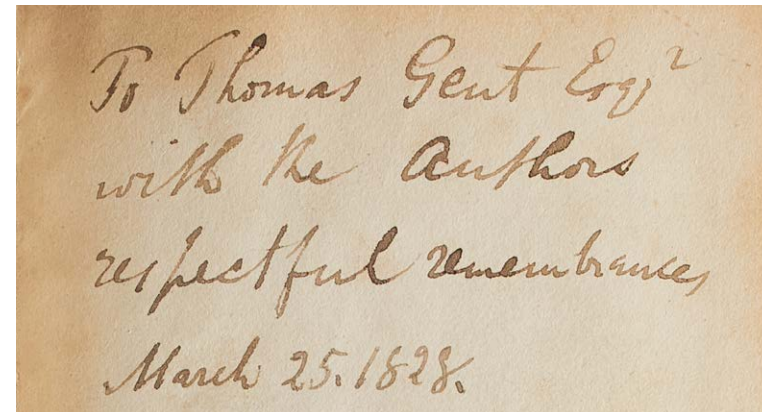 To Thomas Gent Esqr
with the Authors
respectful remembrances
March 25. 1828.